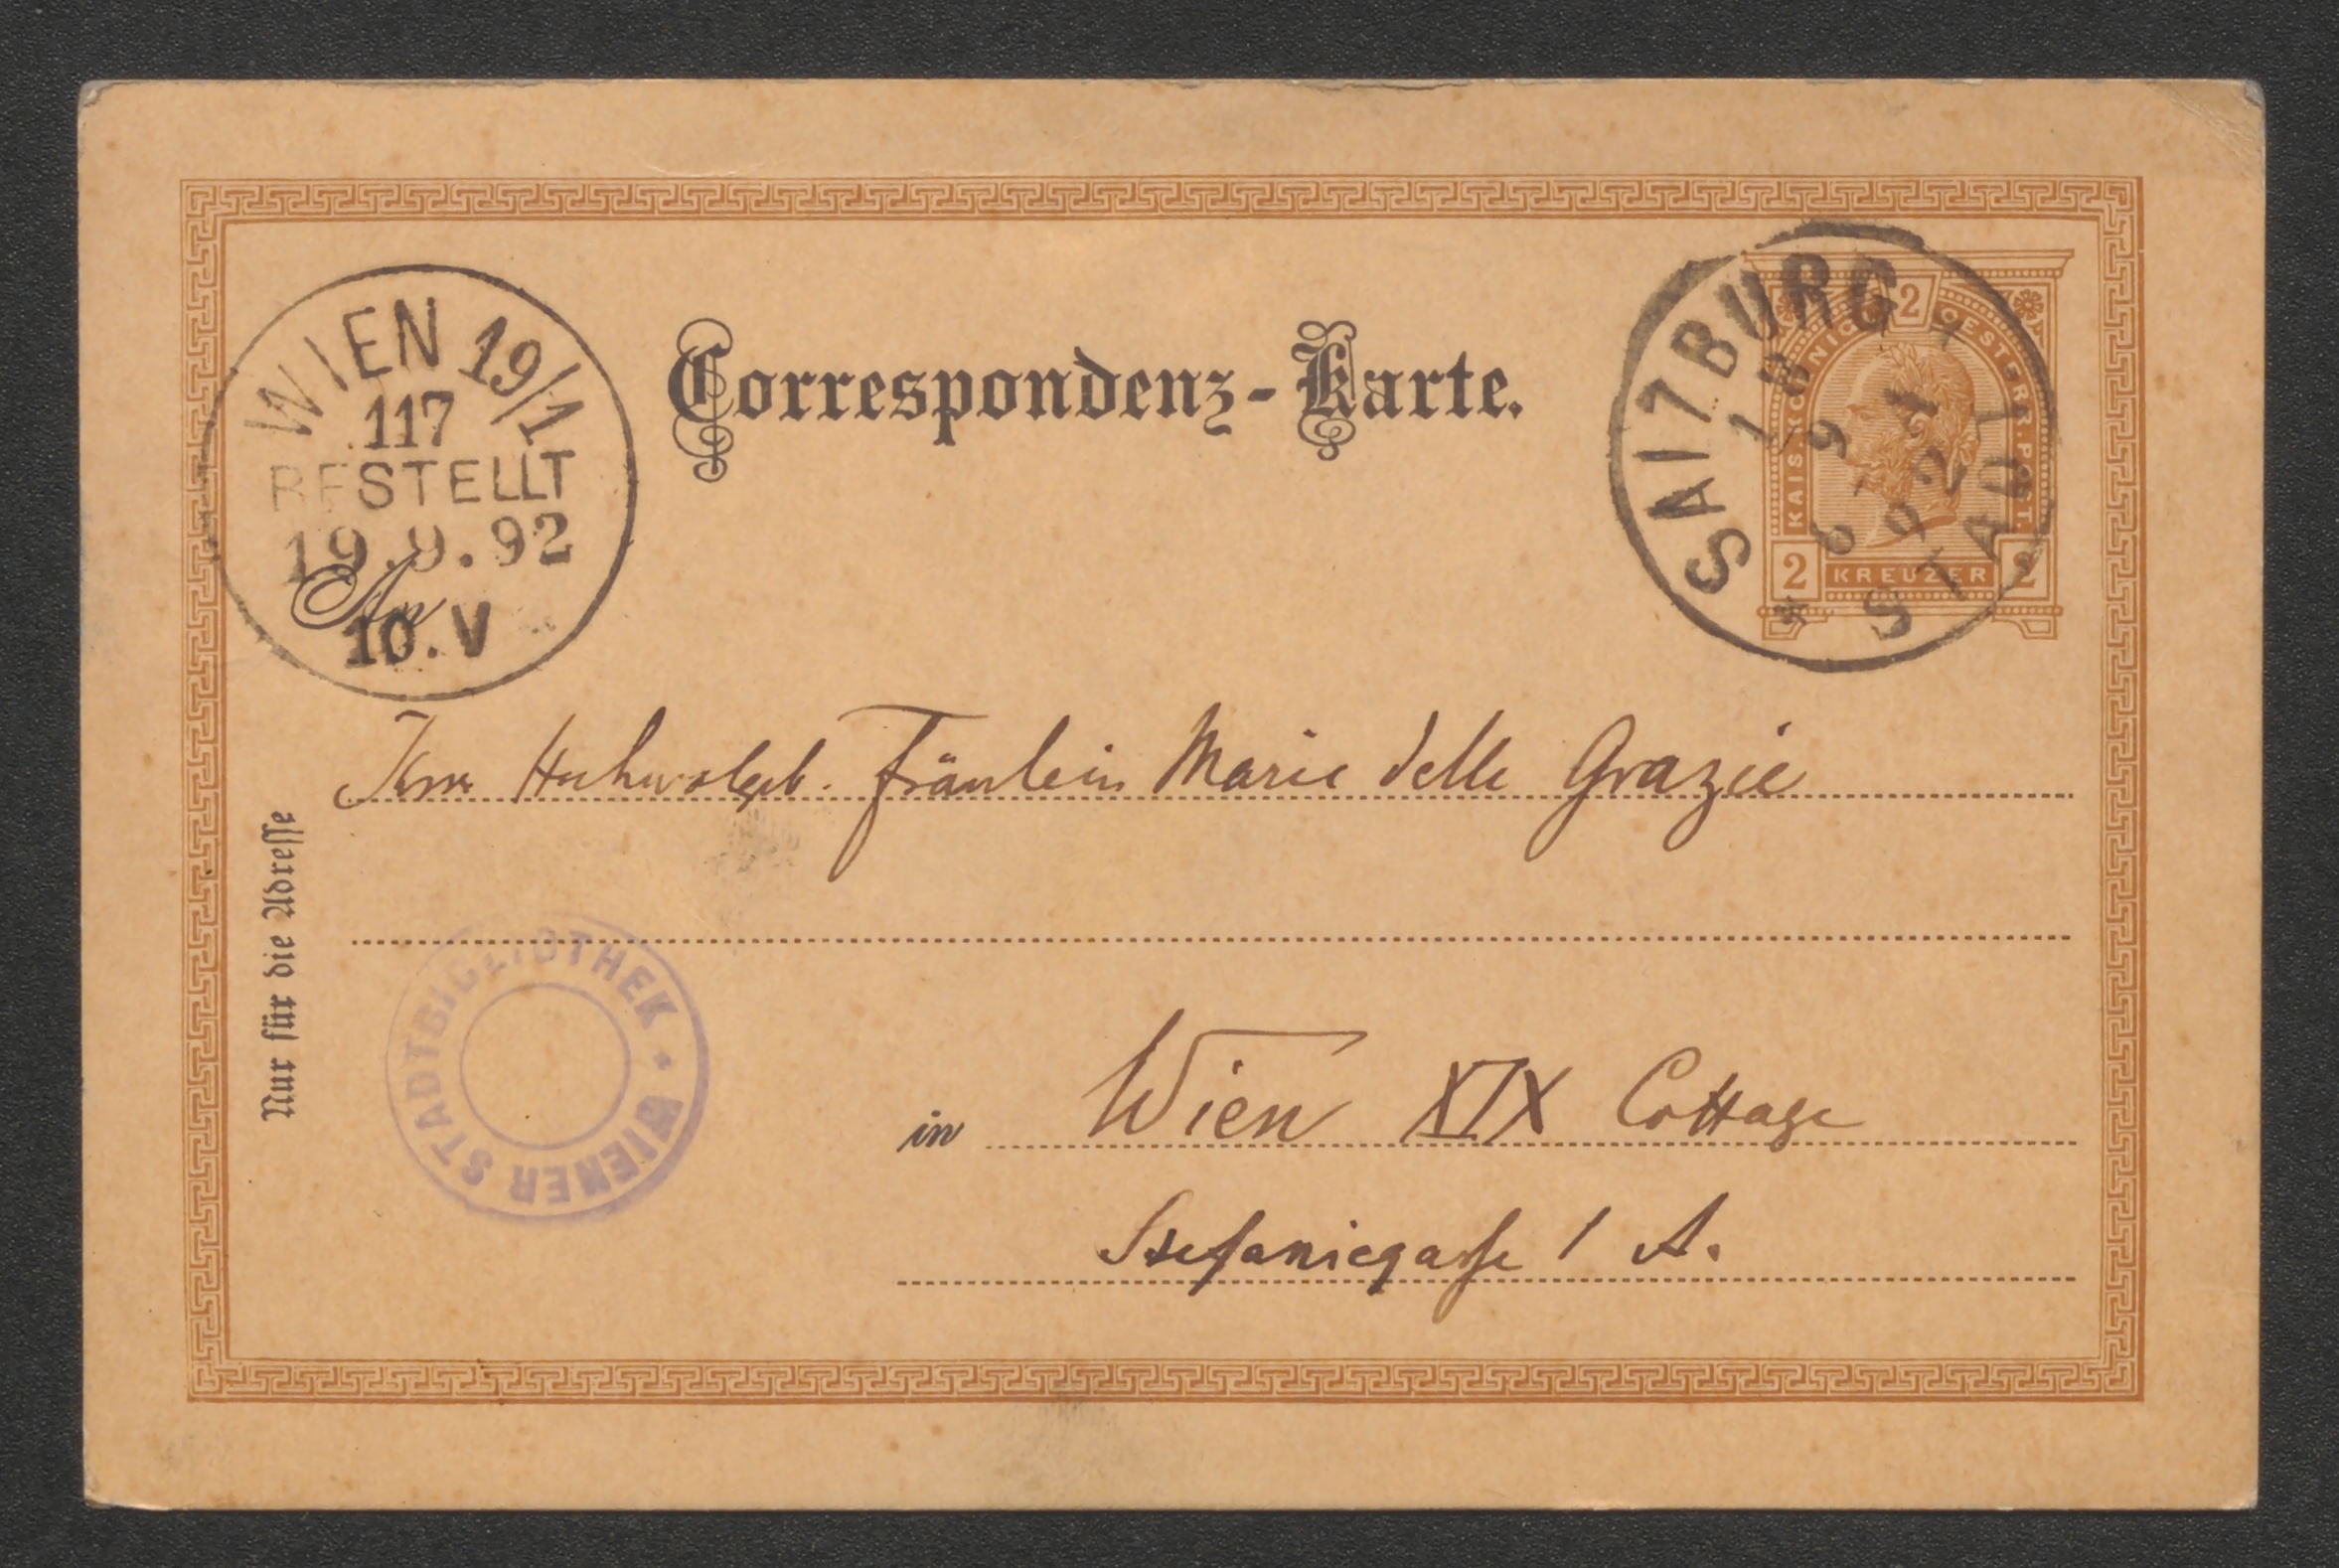 WIEN 19/1
117
BESTELLT
19.9.92
10.V
Correspondenz-Karte.
SALZBURG STADT
18 9
92
2
KAIS. KÖNIGL. OESTERR. POST.
2 KREUZER 2
An
Ihrer Hochwolgeb. Fräulein Marie delle Grazie
Nur für die Adresse
WIENER STADTBIBLIOTHEK
in Wien XIX Cottage
Stefaniegasse 1 A.